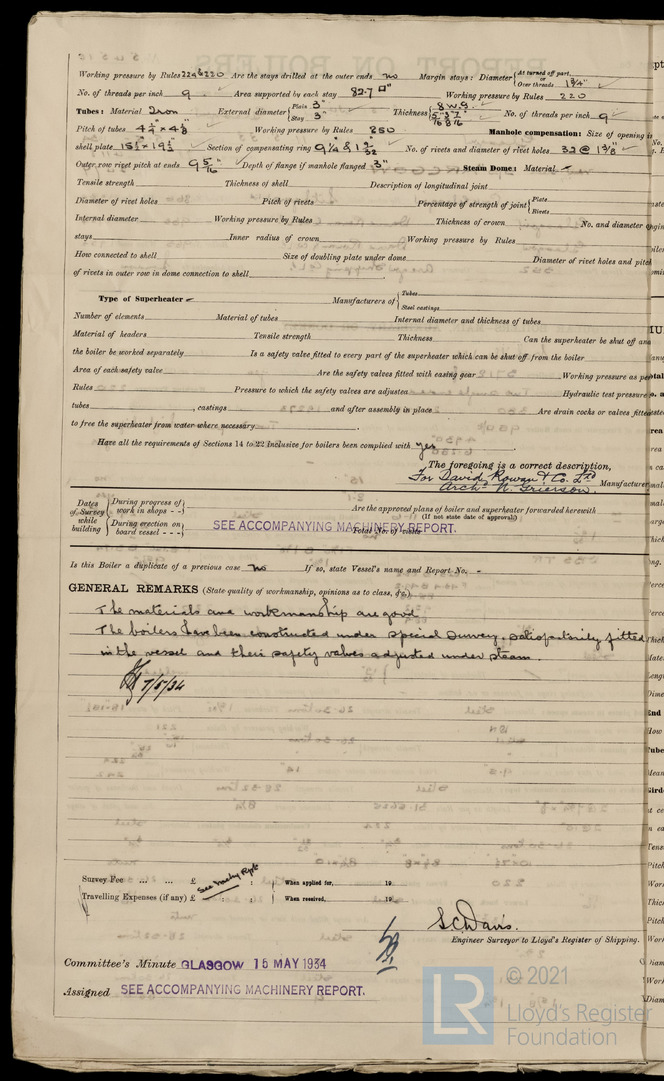 Working pressure by Rules 224 & 220 Are the stays drilled at the outer ends no Margin stays: Diameter { At turned off part, Over threads 1 3/4"
No. of threads per inch 9 Area supported by each stay 82.7 □" Working pressure by Rules 220
Tubes: Material Iron External diameter { Plain 3" Stay 3" Thickness { 8 W.G. No. of threads per inch 9
Pitch of tubes Working pressure by Rules 250 Manhole compensation: Size of opening in
shell plate 15½ x 19½ Section of compensating ring No. of rivets and diameter of rivet holes 32 @ 1 3/8"
Outer row rivet pitch at ends 9 5/16" Depth of flange if manhole flanged 3" Steam Dome: Material
Tensile strength Thickness of shell Description of longitudinal joint
Diameter of rivet holes Pitch of rivets Percentage of strength of joint { Plate Rivets
Internal diameter Working pressure by Rules Thickness of crown No. and diameter
stays Inner radius of crown Working pressure by Rules
How connected to shell Size of doubling plate under dome Diameter of rivet holes and pitch
of rivets in outer row in dome connection to shell
Type of Superheater Manufacturers of { Tubes Steel castings
Number of elements Material of tubes Internal diameter and thickness of tubes
Material of headers Tensile strength Thickness Can the superheater be shut off and
the boiler be worked separately Is a safety valve fitted to every part of the superheater which can be shut off from the boiler
Area of each safety valve Are the safety valves fitted with easing gear Working pressure as per
Rules Pressure to which the safety valves are adjusted Hydraulic test pressure
tubes , castings and after assembly in place Are drain cocks or valves fitted
to free the superheater from water where necessary
Have all the requirements of Sections 14 to 22 inclusive for boilers been complied with yes
The foregoing is a correct description,
For David Rowan & Co. Ltd
Archd. W. Grierson. Manufacturer
Dates of Survey while building { During progress of work in shops - - During erection on board vessel - - - Are the approved plans of boiler and superheater forwarded herewith
(If not state date of approval)
SEE ACCOMPANYING MACHINERY REPORT.
Total No. of visits
Is this Boiler a duplicate of a previous case no If so, state Vessel's name and Report No. -
GENERAL REMARKS (State quality of workmanship, opinions as to class, &c.)
The materials and workmanship are good
The boilers have been constructed under special survey, satisfactorily fitted
in the vessel and their safety valves adjusted under steam.
7/5/34
Survey Fee ... ... £ See Mchy Rpt : : When applied for, 19
Travelling Expenses (if any) £ : : When received, 19
S.C. Davis.
Engineer Surveyor to Lloyd's Register of Shipping.
Committee's Minute GLASGOW 15 MAY 1934
Assigned SEE ACCOMPANYING MACHINERY REPORT.
© 2021
Lloyd's Register
Foundation